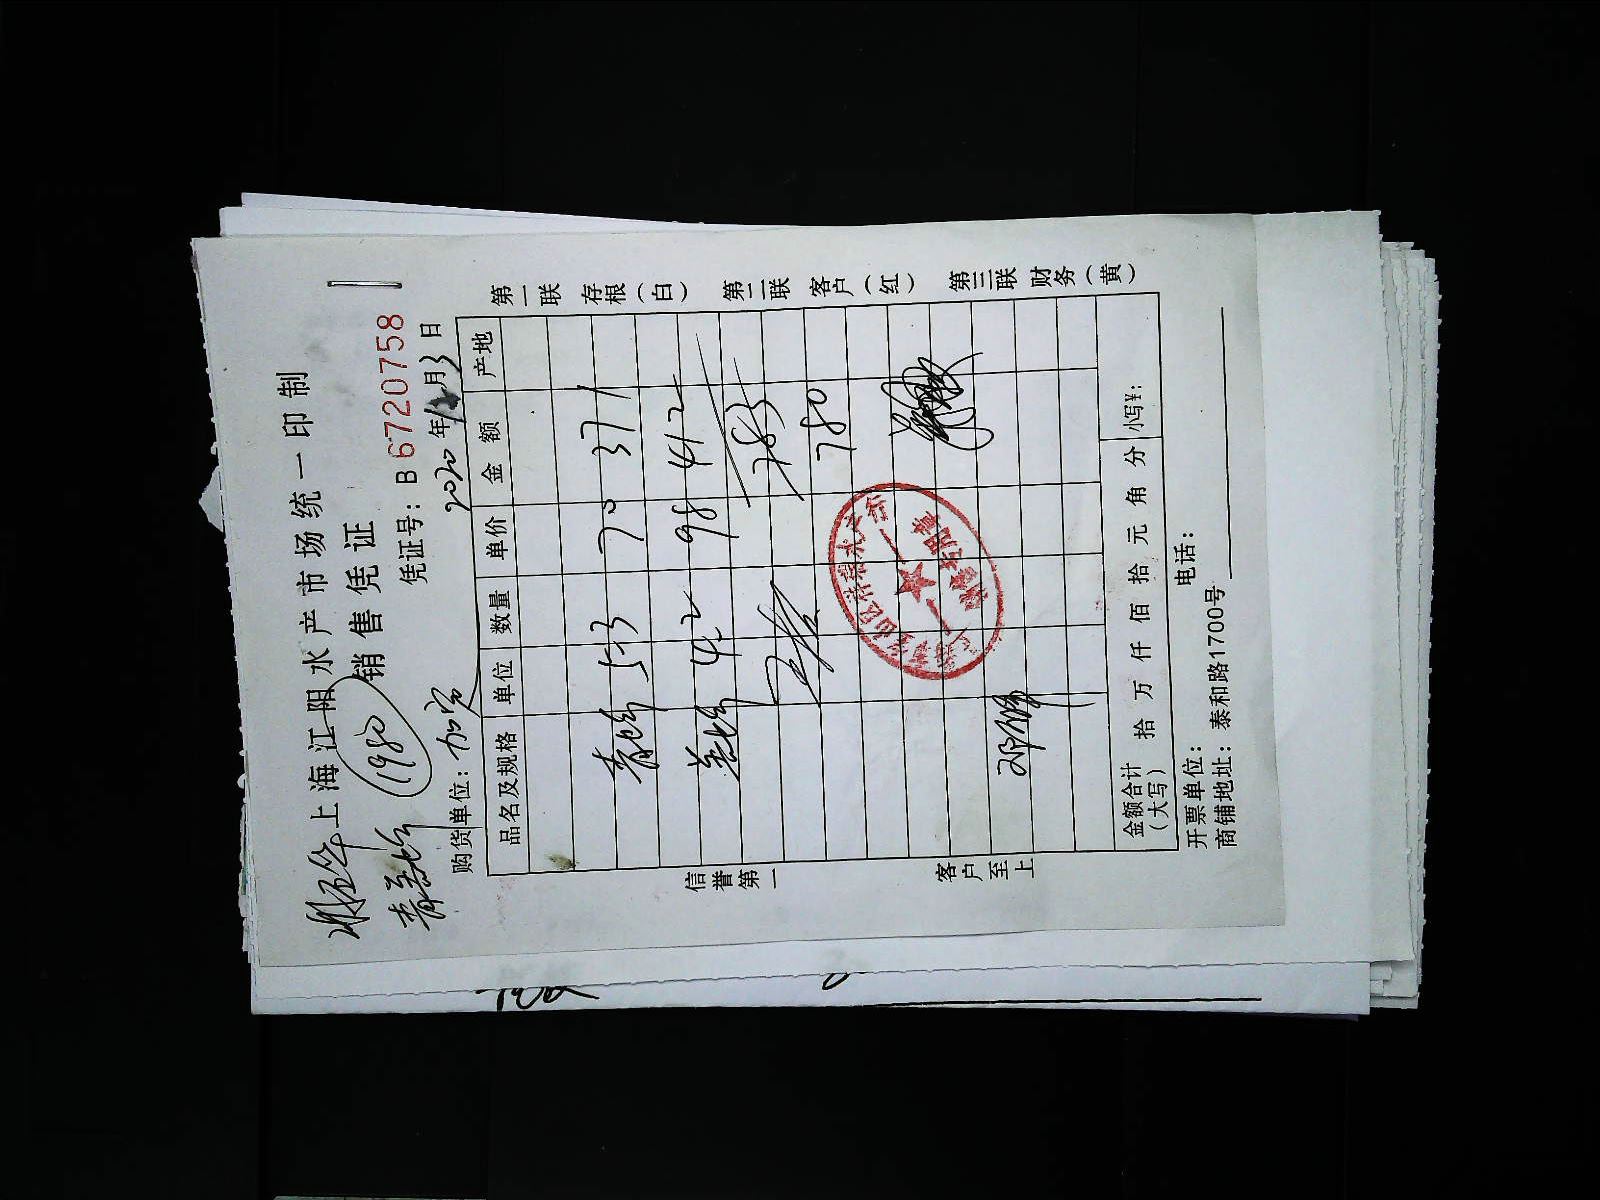 上海江阳水产市场统一印制
1980
销售凭证
凭证号：B 6720758
购货单位：
2020年12月3日
品名及规格 单位 数量 单价 金额 产地
53 70 371
42 98 412
783
780
邓
金额合计（大写） 拾 万 仟 佰 拾 元 角 分 小写¥：
开票单位： 电话：
商铺地址：泰和路1700号
信誉第一 客户至上
第一联 存根（白） 第二联 客户（红） 第三联 财务（黄）